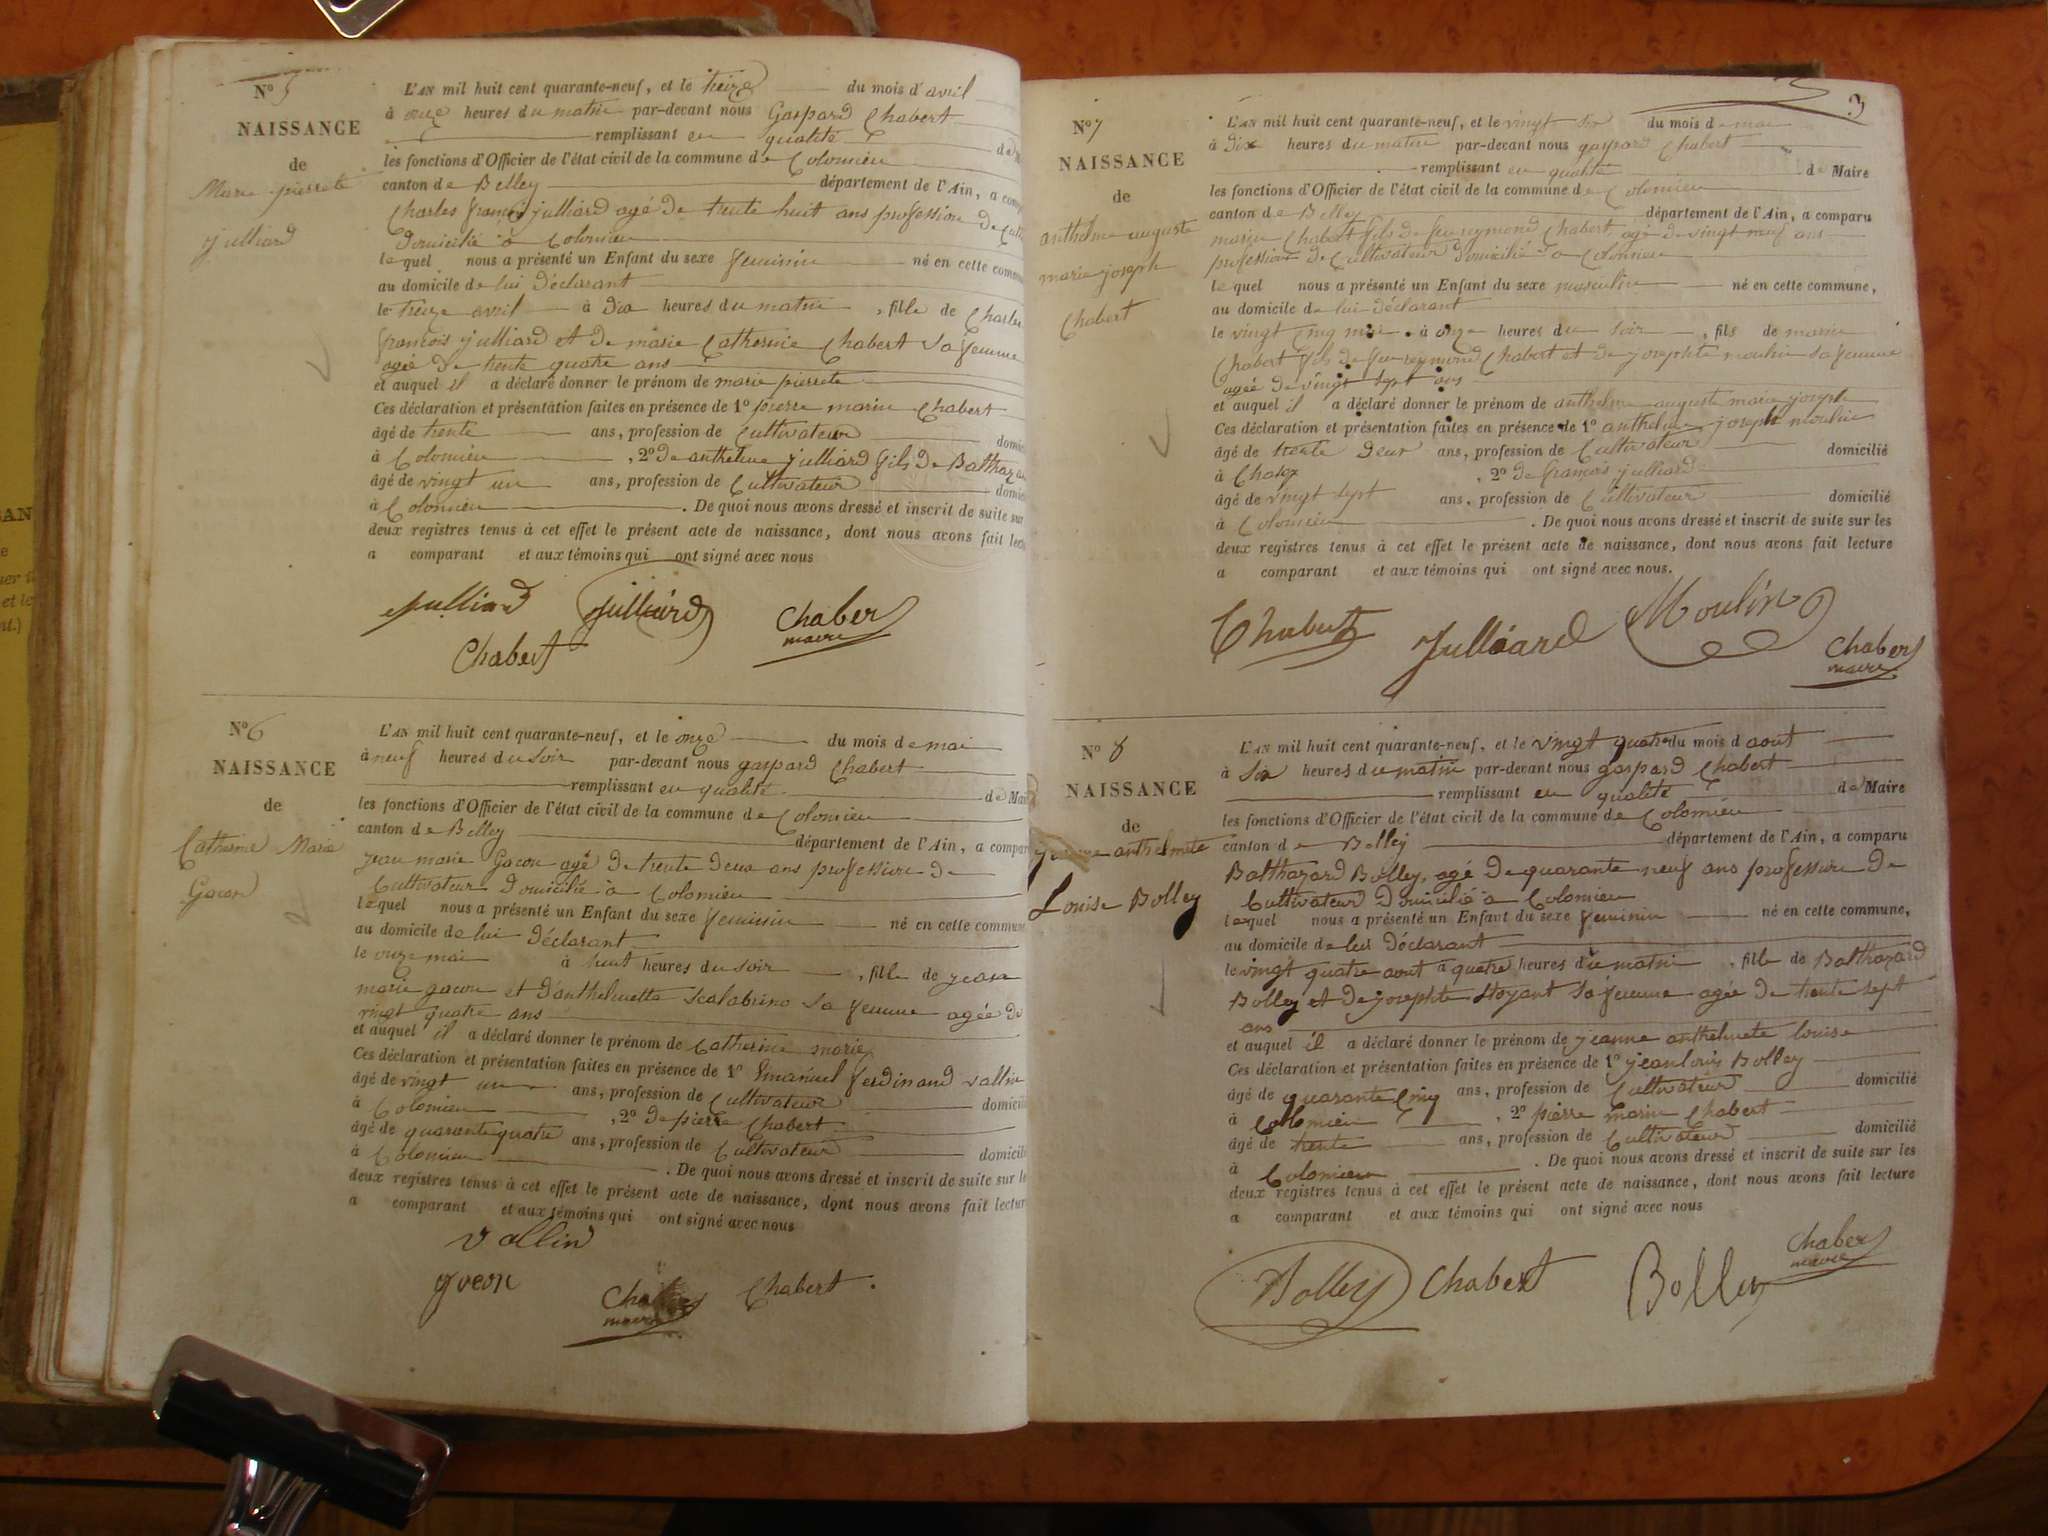 N° 5
NAISSANCE
de
Marie pierrete
julliard
L'AN mil huit cent quarante-neuf, et le treize du mois d'avril
à onze heures du matin par-devant nous Gaspard Chabert
remplissant en qualité de
les fonctions d'Officier de l'état civil de la commune de Colomieu
canton de Belley département de l'Ain, a comp
Charles françois julliard agé de trente huit ans profession de Cult
domicilié à Colomieu
lequel nous a présenté un Enfant du sexe feminin né en cette commun
au domicile de lui déclarant
le treize avril à dix heures du matin, fille de Charles
françois julliard et de marie Catherine Chabert sa femme
agée de trente quatre ans
et auquel il a déclaré donner le prénom de marie pierrete
Ces déclaration et présentation faites en présence de 1° pierre marin Chabert
âgé de trente ans, profession de Cultivateur domic
à Colomieu, 2° de anthelme julliard fils de Balthazar
âgé de vingt un ans, profession de Cultivateur domici
à Colomieu. De quoi nous avons dressé et inscrit de suite sur
deux registres tenus à cet effet le présent acte de naissance, dont nous avons fait lectu
a comparant et aux témoins qui ont signé avec nous
Julliard Julliard Chaber
maire
Chabert
N° 6
NAISSANCE
de
Catherine Marie
Gacon
L'AN mil huit cent quarante-neuf, et le onze du mois de mai
à neuf heures du soir par-devant nous gaspard Chabert
remplissant en qualité de Mair
les fonctions d'Officier de l'état civil de la commune de Colomieu
canton de Belley département de l'Ain, a compar
jean marie Gacon agé de trente deux ans profession de
Cultivateur domicilié à Colomieu
lequel nous a présenté un Enfant du sexe feminin né en cette commune
au domicile de lui déclarant
le onze mai à huit heures du soir, fille de jean
marie gacon et d'anthelmette Scalabrino sa femme agée de
vingt quatre ans
et auquel il a déclaré donner le prénom de Catherine marie
Ces déclaration et présentation faites en présence de 1° Emanuel ferdinand vallin
âgé de vingt un ans, profession de Cultivateur domicili
à Colomieu, 2° de pierre Chabert
âgé de quarante quatre ans, profession de Cultivateur domicili
à Colomieu. De quoi nous avons dressé et inscrit de suite sur le
deux registres tenus à cet effet le présent acte de naissance, dont nous avons fait lectur
a comparant et aux témoins qui ont signé avec nous
Vallin
Chabert
maire
3
N° 7
NAISSANCE
de
anthelme auguste
marie joseph
Chabert
L'AN mil huit cent quarante-neuf, et le vingt six du mois de mai
à dix heures du matin par-devant nous gaspard Chabert
remplissant en qualité de Maire
les fonctions d'Officier de l'état civil de la commune de Colomieu
canton de Belley département de l'Ain, a comparu
marin Chabert fils de feu reymond Chabert agé de vingt neuf ans
profession de Cultivateur domicilié à Colomieu
lequel nous a présenté un Enfant du sexe masculin né en cette commune,
au domicile de lui déclarant
le vingt cinq mai à onze heures du soir, fils de marin
Chabert fils de feu reymond Chabert et de josephte moulin sa femme
agée de vingt sept ans
et auquel il a déclaré donner le prénom de anthelme auguste marie joseph
Ces déclaration et présentation faites en présence de 1° anthelme joseph moulin
âgé de trente deux ans, profession de Cultivateur domicilié
à, 2° de françois julliard
âgé de vingt sept ans, profession de Cultivateur domicilié
à Colomieu. De quoi nous avons dressé et inscrit de suite sur les
deux registres tenus à cet effet le présent acte de naissance, dont nous avons fait lecture
a comparant et aux témoins qui ont signé avec nous.
Chabert Julliard Moulin Chaber
maire
N° 8
NAISSANCE
de
jeanne anthelmete
Louise Bolley
L'AN mil huit cent quarante-neuf, et le vingt quatre du mois d aout
à six heures du matin par-devant nous gaspard Chabert
remplissant en qualité de Maire
les fonctions d'Officier de l'état civil de la commune de Colomieu
canton de Belley département de l'Ain, a comparu
Balthazard Bolley, agé de quarante neuf ans profession de
Cultivateur domicilié à Colomieu
lequel nous a présenté un Enfant du sexe feminin né en cette commune,
au domicile de lui déclarant
le vingt quatre aout à quatre heures du matin, fille de Balthazard
Bolley et de josephte sa femme agée de trente sept
ans
et auquel il a déclaré donner le prénom de jeanne anthelmete louise
Ces déclaration et présentation faites en présence de 1° jean louis Bolley
âgé de quarante cinq ans, profession de Cultivateur domicilié
à Colomieu, 2° pierre marin Chabert
âgé de trente ans, profession de Cultivateur domicilié
à Colomieu. De quoi nous avons dressé et inscrit de suite sur les
deux registres tenus à cet effet le présent acte de naissance, dont nous avons fait lecture
a comparant et aux témoins qui ont signé avec nous
Bolley Chabert Bolley Chaber
maire